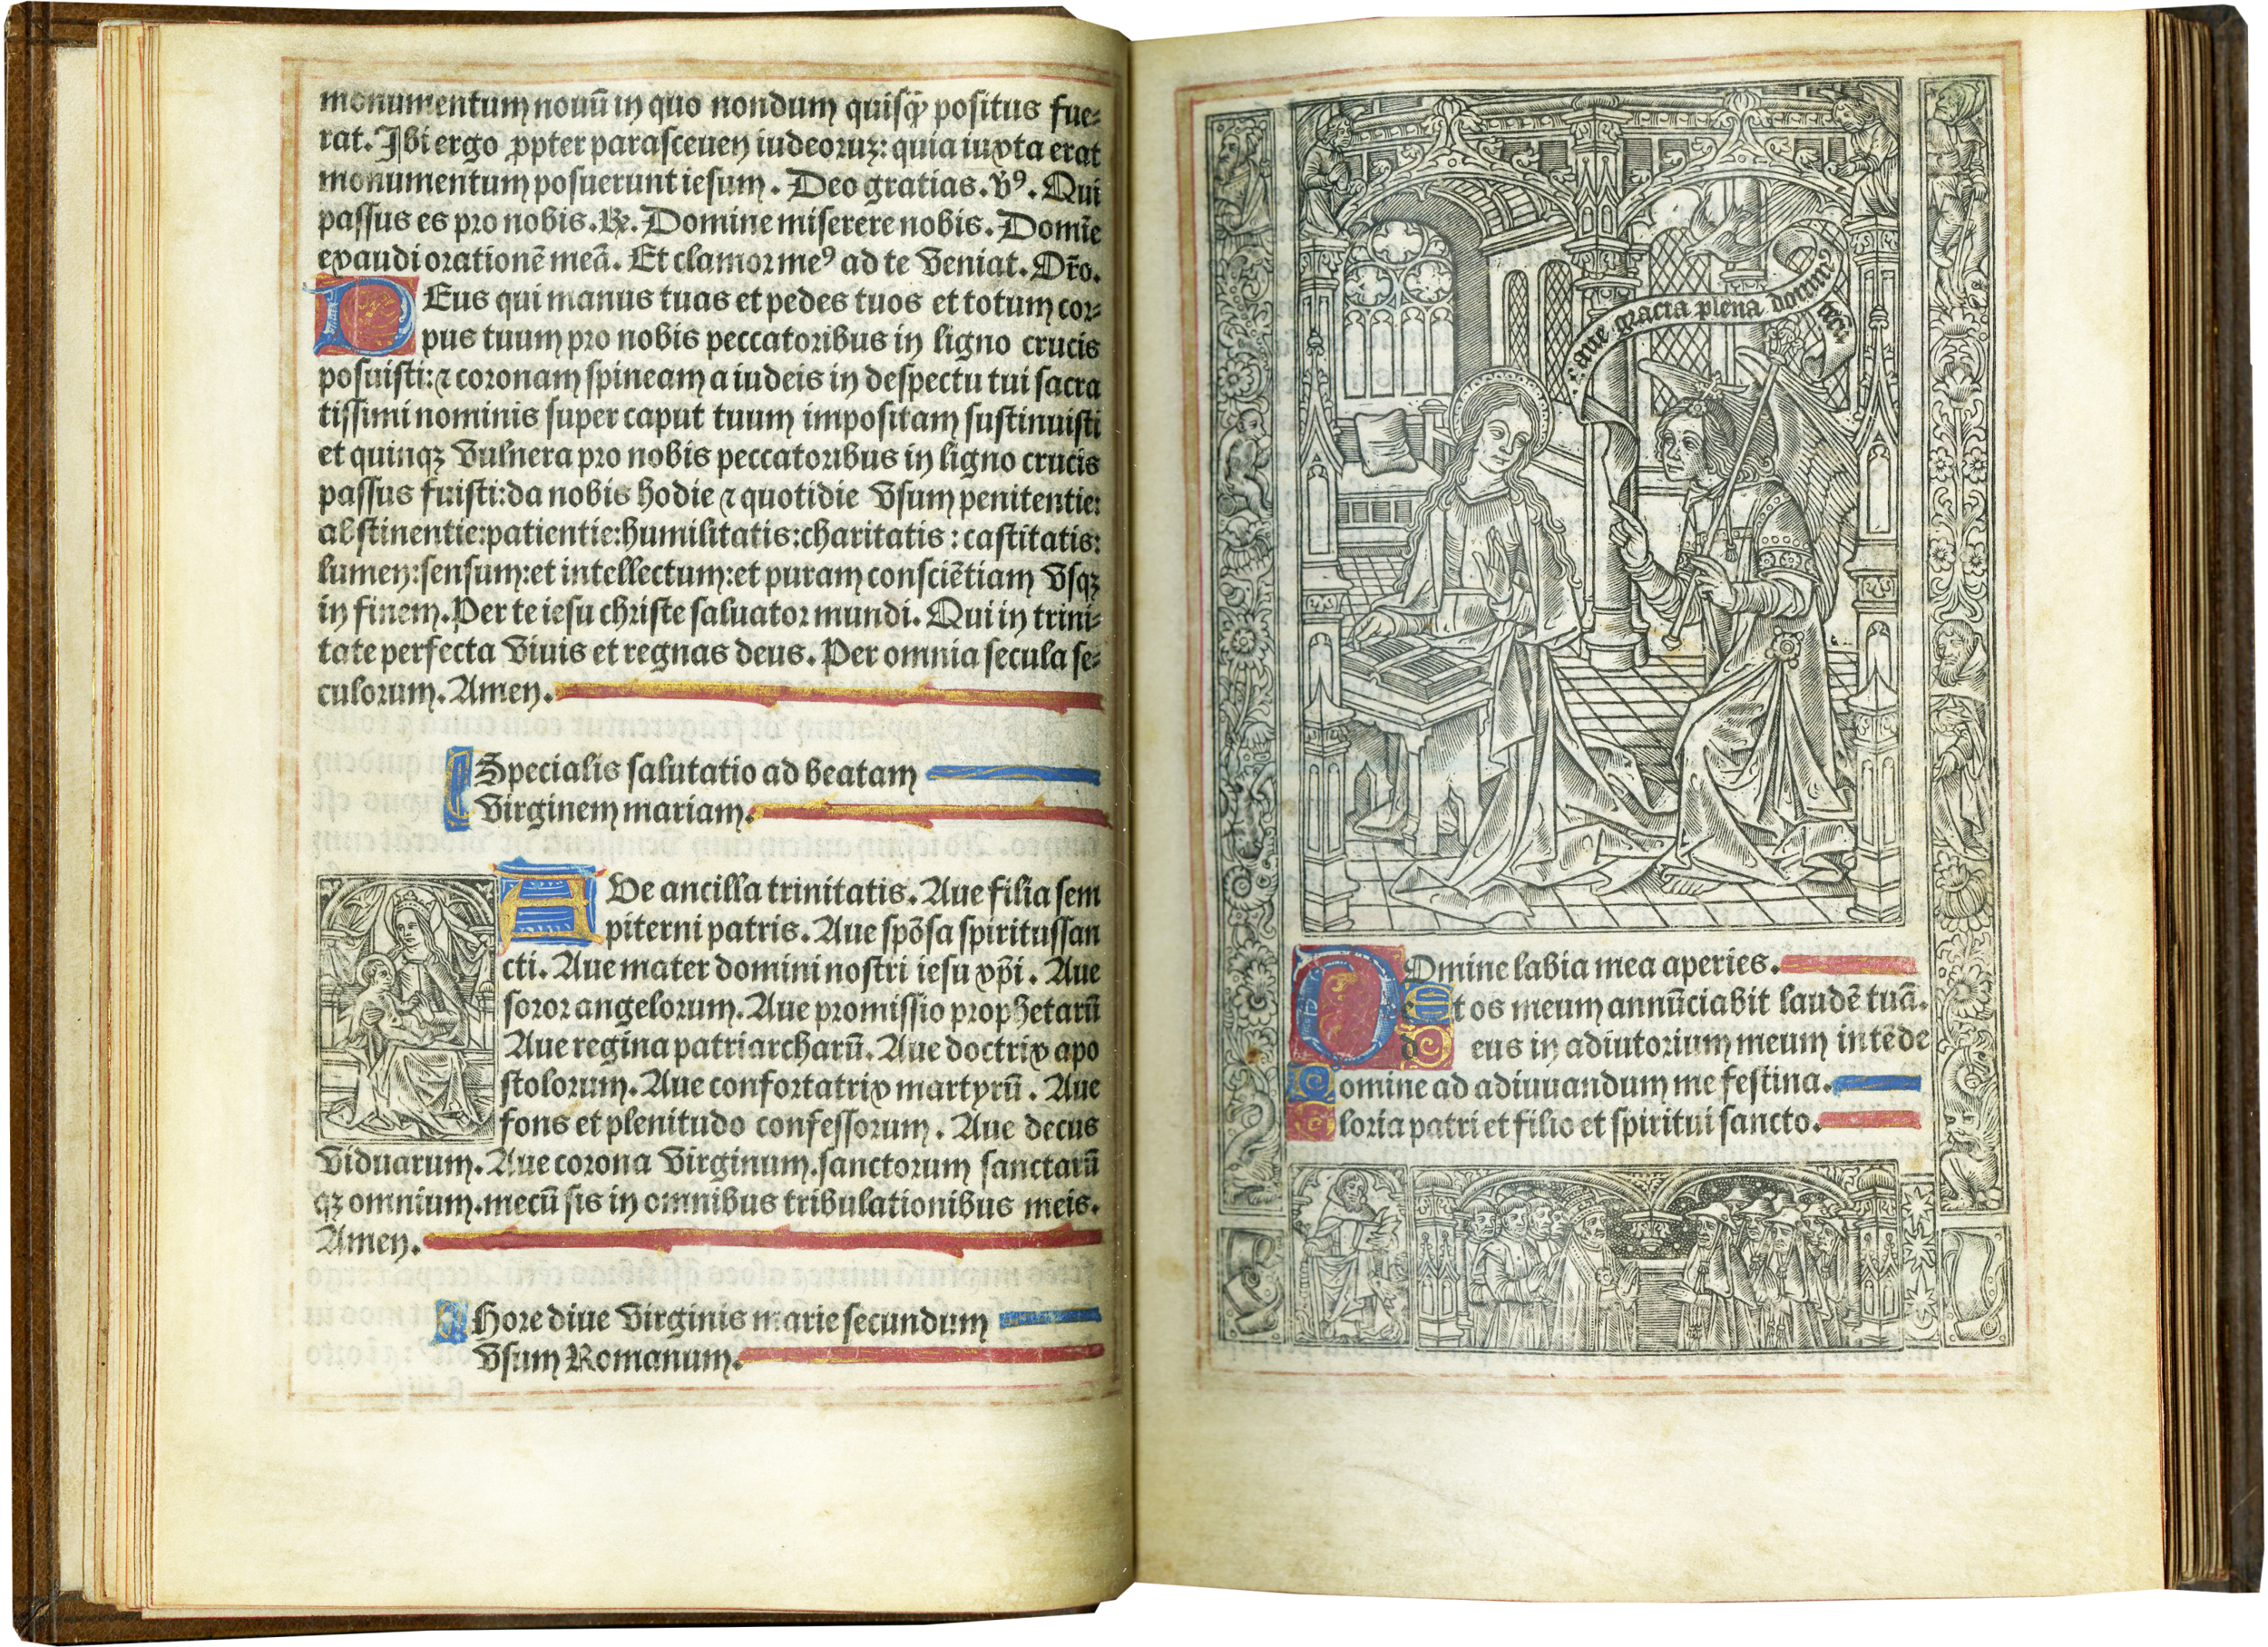 monumentum nouū in quo nondum quisq̄ positus fue=
rat. Ibi ergo ꝓpter parasceuen iudeoruꝫ: quia iuxta erat
monumentum posuerunt iesum. Deo gratias. v̄ꝰ. Qui
passus es pro nobis. ℞. Domine miserere nobis. Domīe
exaudi orationē meā. Et clamor meꝰ ad te veniat. Or̄o.
DEus qui manus tuas et pedes tuos et totum cor=
pus tuum pro nobis peccatoribus in ligno crucis
posuisti: ⁊ coronam spineam a iudeis in despectu tui sacra
tissimi nominis super caput tuum impositam sustinuisti
et quinqꝫ vulnera pro nobis peccatoribus in ligno crucis
passus fuisti: da nobis hodie ⁊ quotidie vsum penitentie:
abstinentie: patientie: humilitatis: charitatis: castitatis:
lumen: sensum: et intellectum: et puram consciētiam vsqꝫ
in finem. Per te iesu christe saluator mundi. Qui in trini=
tate perfecta viuis et regnas deus. Per omnia secula se=
culorum. Amen.
Specialis salutatio ad beatam
virginem mariam.
AVe ancilla trinitatis. Aue filia sem
piterni patris. Aue spōsa spiritussan
cti. Aue mater domini nostri iesu xp̄i. Aue
soror angelorum. Aue promissio prophetarū
Aue regina patriarcharū. Aue doctrix apo
stolorum. Aue confortatrix martyrū. Aue
fons et plenitudo confessorum. Aue decus
viduarum. Aue corona virginum. sanctorum sanctarū
qꝫ omnium. mecū sis in omnibus tribulationibus meis.
Amen.
Hore diue virginis marie secundum
vsum Romanum.
aue gracia plena domin9 tecū
DOmine labia mea aperies.
Et os meum annūciabit laudē tuā.
Deus in adiutorium meum intēde
Domine ad adiuuandum me festina.
Gloria patri et filio et spiritui sancto.